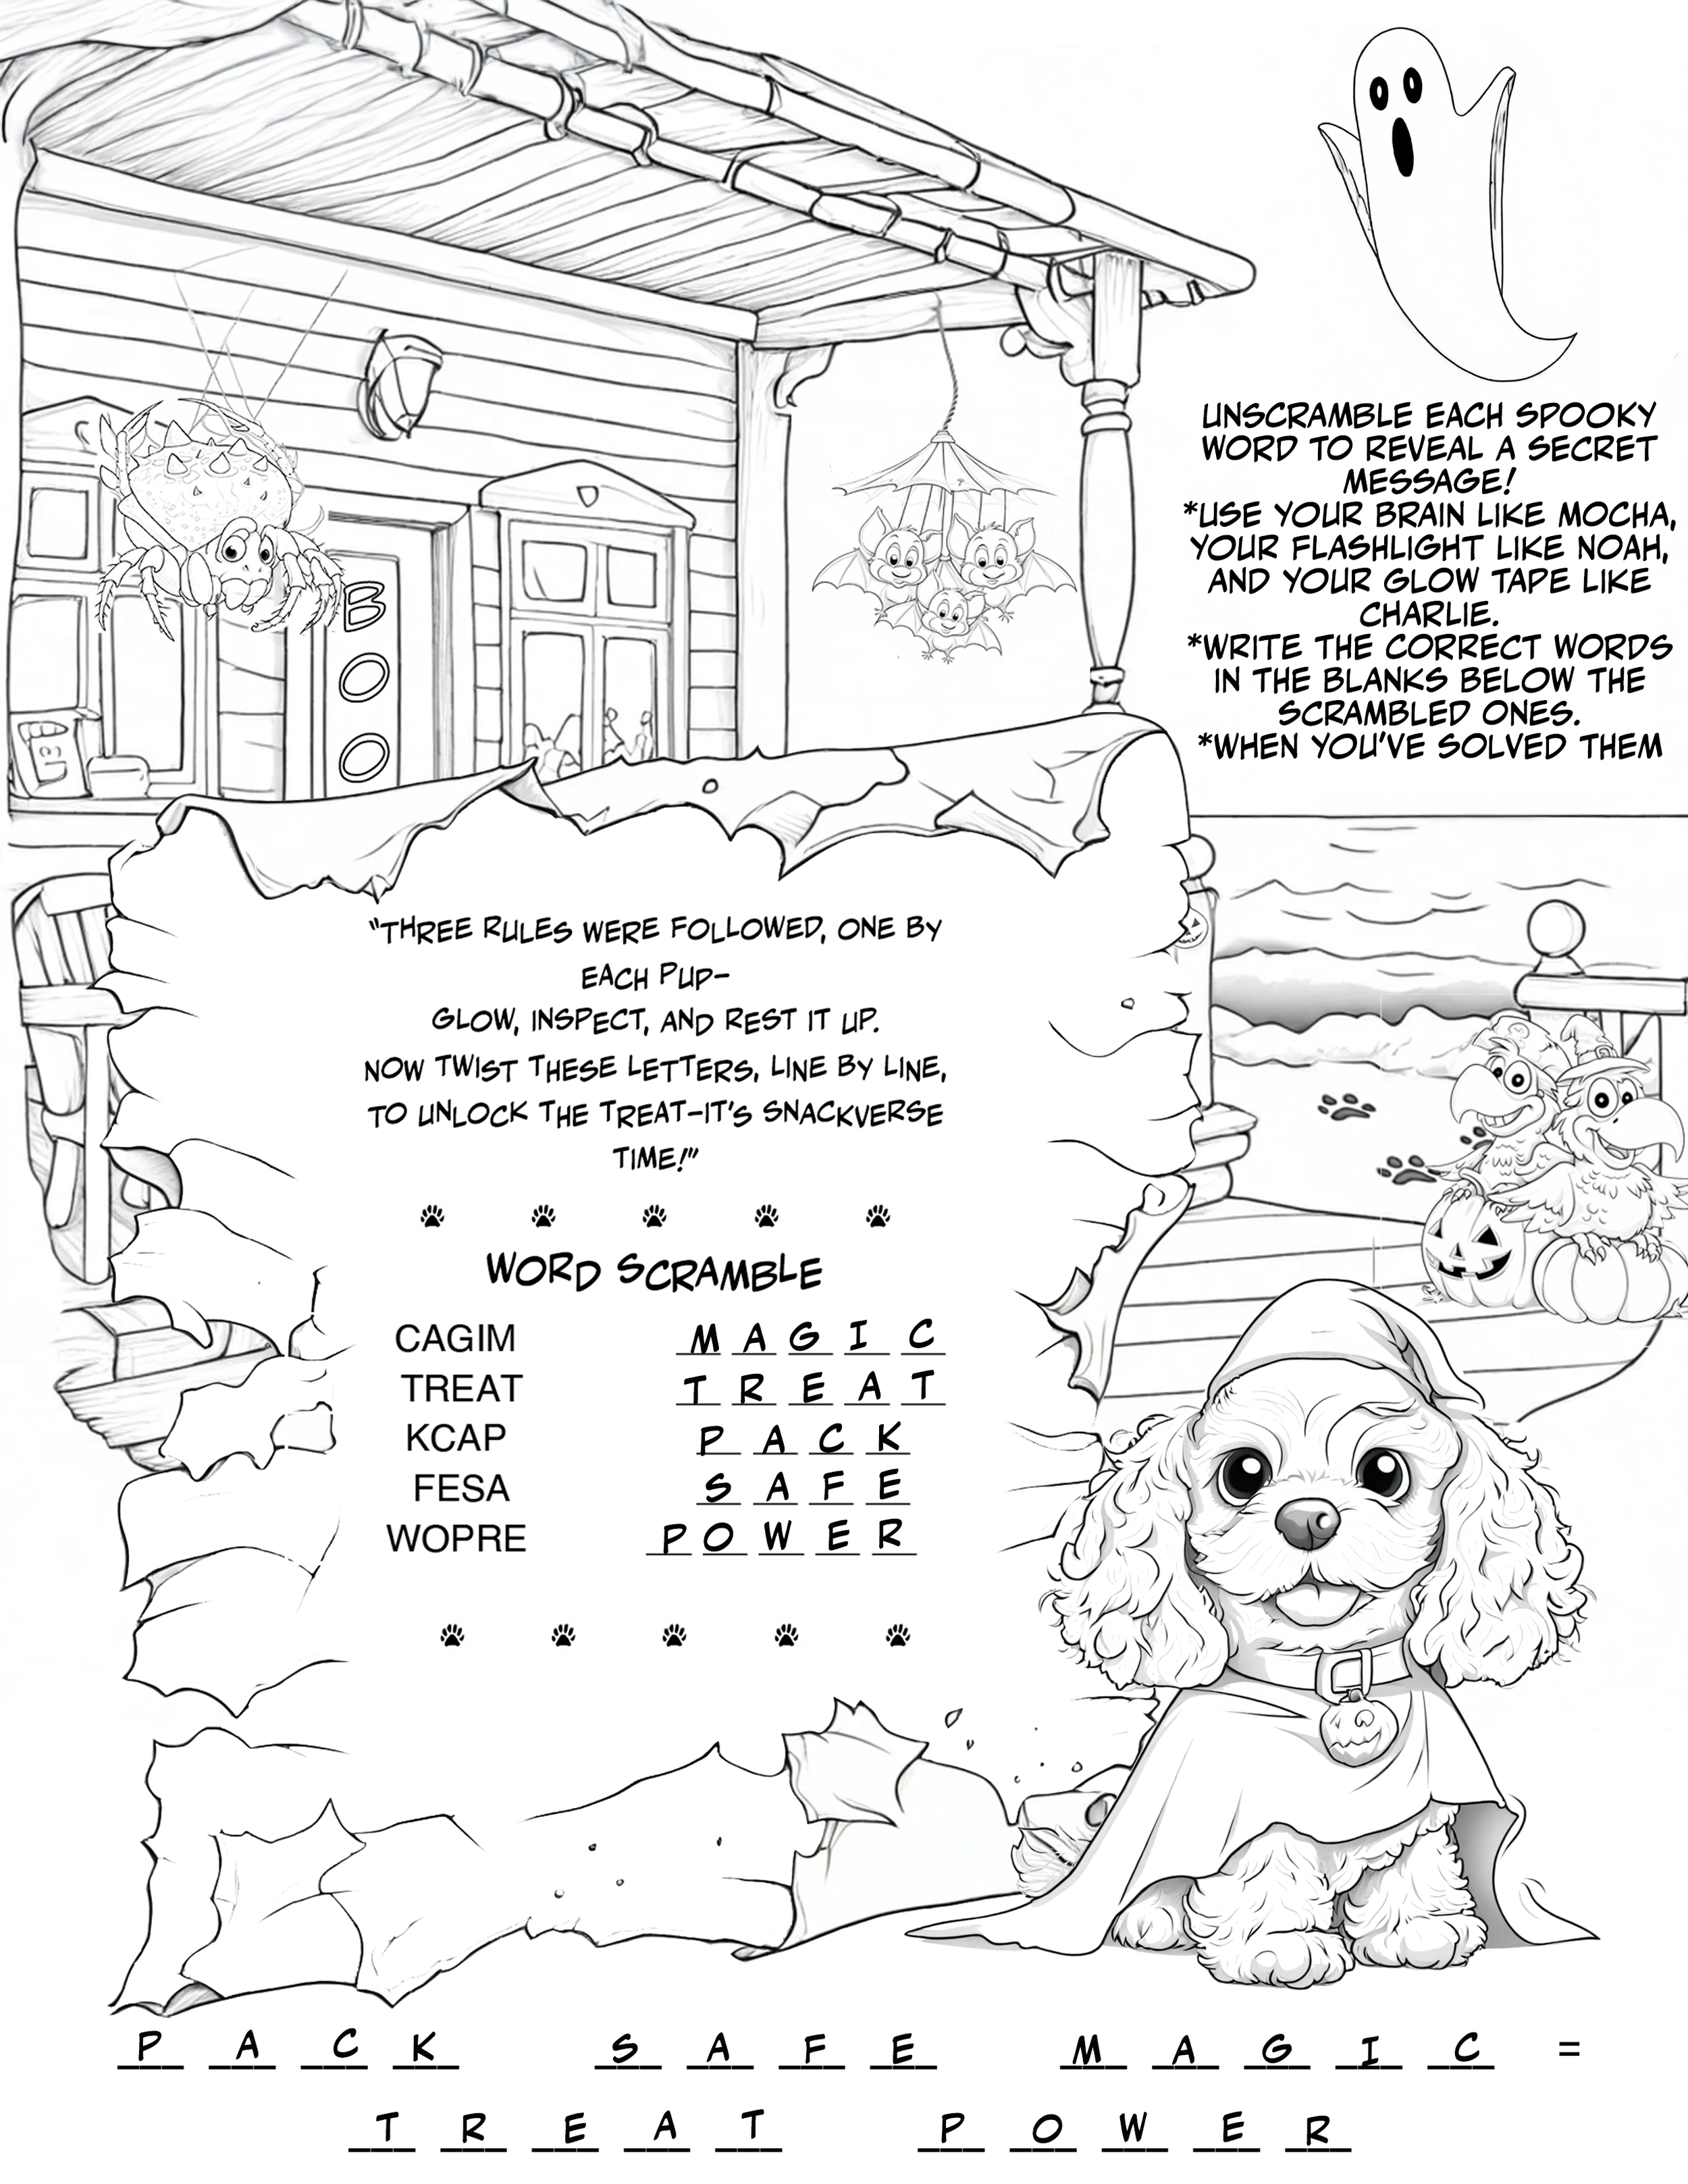 UNSCRAMBLE EACH SPOOKY
WORD TO REVEAL A SECRET
MESSAGE!
*USE YOUR BRAIN LIKE MOCHA,
YOUR FLASHLIGHT LIKE NOAH,
AND YOUR GLOW TAPE LIKE
CHARLIE.
*WRITE THE CORRECT WORDS
IN THE BLANKS BELOW THE
SCRAMBLED ONES.
*WHEN YOU'VE SOLVED THEM
B
O
O
"THREE RULES WERE FOLLOWED, ONE BY
EACH PUP-
GLOW, INSPECT, AND REST IT UP.
NOW TWIST THESE LETTERS, LINE BY LINE,
TO UNLOCK THE TREAT-IT'S SNACKVERSE
TIME!"
WORD SCRAMBLE
CAGIM M A G I C
TREAT T R E A T
KCAP P A C K
FESA S A F E
WOPRE P O W E R
P A C K S A F E M A G I C =
T R E A T P O W E R